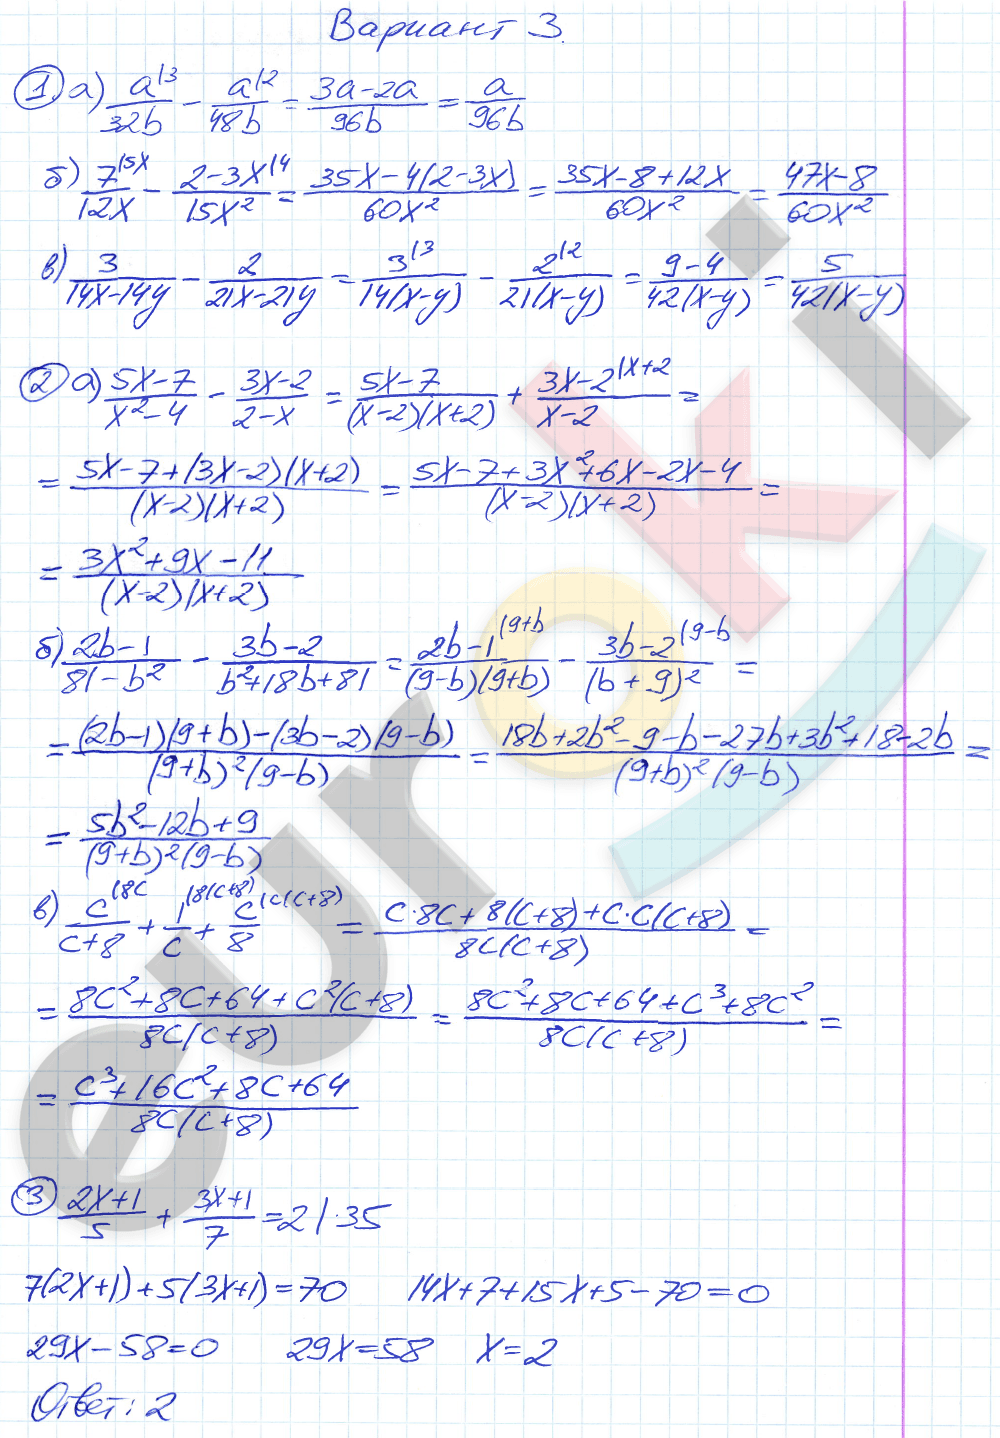 Вариант 3.
① а) a^{|3}/32b − a^{|2}/48b = (3a−2a)/96b = a/96b
б) 7^{|5x}/12x − (2−3x^{|4})/15x² = (35x−4(2−3x))/60x² = (35x−8+12x)/60x² = (47x−8)/60x²
в) 3/(14x−14y) − 2/(21x−21y) = 3^{|3}/14(x−y) − 2^{|2}/21(x−y) = (9−4)/42(x−y) = 5/42(x−y)
② а) (5x−7)/(x²−4) − (3x−2)/(2−x) = (5x−7)/(x−2)(x+2) + (3x−2^{|x+2})/(x−2) =
= (5x−7+(3x−2)(x+2))/(x−2)(x+2) = (5x−7+3x²+6x−2x−4)/(x−2)(x+2) =
= (3x²+9x−11)/(x−2)(x+2)
б) (2b−1)/(81−b²) − (3b−2)/(b²+18b+81) = (2b−1^{|9+b})/(9−b)(9+b) − (3b−2^{|9−b})/(b+9)² =
= ((2b−1)(9+b)−(3b−2)(9−b))/(9+b)²(9−b) = (18b+2b²−9−b−27b+3b²+18−2b)/(9+b)²(9−b) =
= (5b²−12b+9)/(9+b)²(9−b)
в) c^{|8c}/(c+8) + 1^{|8(c+8)}/c + c^{|c(c+8)}/8 = (c·8c+8(c+8)+c·c(c+8))/8c(c+8) =
= (8c²+8c+64+c²(c+8))/8c(c+8) = (8c²+8c+64+c³+8c²)/8c(c+8) =
= (c³+16c²+8c+64)/8c(c+8)
③ (2x+1)/5 + (3x+1)/7 = 2 |·35
7(2x+1)+5(3x+1)=70 14x+7+15x+5−70=0
29x−58=0 29x=58 x=2
Ответ: 2
euroki